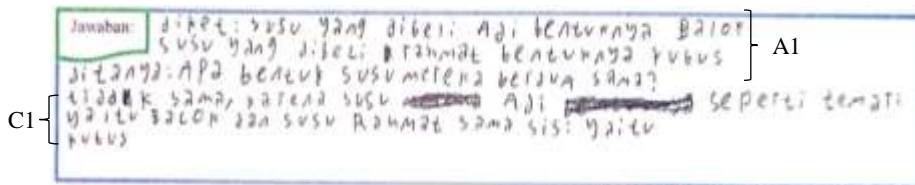 Jawaban: diket: susu yang dibeli Adi bentuknya Balok
susu yang dibeli Rahmat bentuknya kubus
A1
ditanya: Apa bentuk susu mereka berdua sama?
tidak sama, karena susu Adi seperti lemari
C1
yaitu Balok dan susu Rahmat sama sisi yaitu
kubus